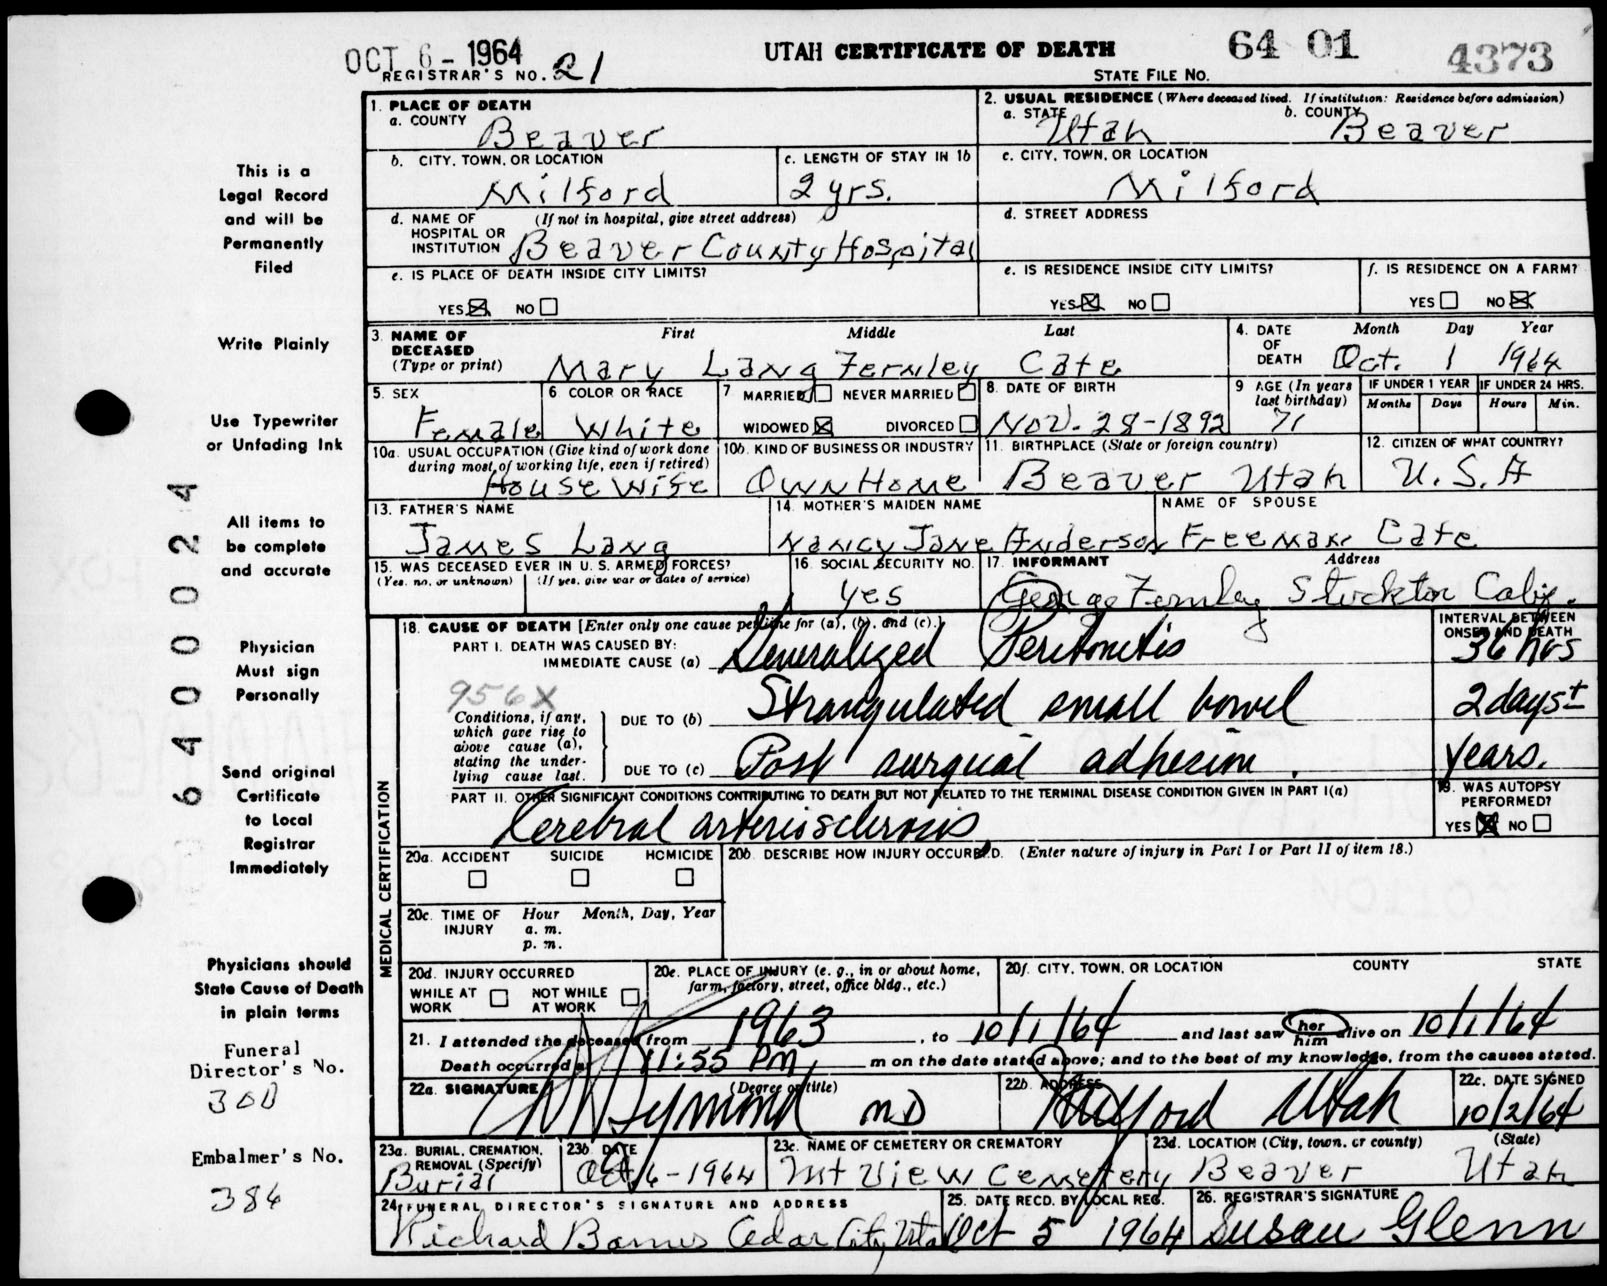 OCT 6 - 1964
UTAH CERTIFICATE OF DEATH
64 01
4373
REGISTRAR'S NO. 21
STATE FILE No.
1. PLACE OF DEATH
a. COUNTY
Beaver
2. USUAL RESIDENCE (Where deceased lived. If institution: Residence before admission)
a. STATE Utah
b. COUNTY Beaver
b. CITY, TOWN, OR LOCATION
Milford
c. LENGTH OF STAY IN 1b
2 yrs.
c. CITY, TOWN, OR LOCATION
Milford
d. NAME OF HOSPITAL OR INSTITUTION (If not in hospital, give street address)
Beaver County Hospital
d. STREET ADDRESS
e. IS PLACE OF DEATH INSIDE CITY LIMITS?
YES NO
e. IS RESIDENCE INSIDE CITY LIMITS?
YES NO
f. IS RESIDENCE ON A FARM?
YES NO
3. NAME OF DECEASED (Type or print)
First Middle Last
Mary Lang Fernley Cate
4. DATE OF DEATH
Month Day Year
Oct. 1 1964
5. SEX
Female
6 COLOR OR RACE
White
7 MARRIED NEVER MARRIED
WIDOWED DIVORCED
8. DATE OF BIRTH
Nov. 28-1892
9 AGE (In years last birthday)
71
IF UNDER 1 YEAR
Months Days
IF UNDER 24 HRS.
Hours Min.
10a. USUAL OCCUPATION (Give kind of work done during most of working life, even if retired)
House Wife
10b. KIND OF BUSINESS OR INDUSTRY
Own Home
11. BIRTHPLACE (State or foreign country)
Beaver Utah
12. CITIZEN OF WHAT COUNTRY?
U.S.A
13. FATHER'S NAME
James Lang
14. MOTHER'S MAIDEN NAME
Nancy Jane Anderson
NAME OF SPOUSE
Freeman Cate
15. WAS DECEASED EVER IN U. S. ARMED FORCES?
(Yes, no, or unknown) (If yes, give war or dates of service)
16. SOCIAL SECURITY NO.
yes
17. INFORMANT Address
George Fernley Stockton Calif.
18. CAUSE OF DEATH [Enter only one cause per line for (a), (b), and (c).]
PART I. DEATH WAS CAUSED BY:
IMMEDIATE CAUSE (a) Generalized Peritonitis
INTERVAL BETWEEN ONSET AND DEATH
36 hrs
956X
Conditions, if any, which gave rise to above cause (a), stating the underlying cause last.
DUE TO (b) Strangulated small bowel
2 days ±
DUE TO (c) Post surgical adhesion.
years.
PART II. OTHER SIGNIFICANT CONDITIONS CONTRIBUTING TO DEATH BUT NOT RELATED TO THE TERMINAL DISEASE CONDITION GIVEN IN PART I(a)
Cerebral arteriosclerosis
19. WAS AUTOPSY PERFORMED?
YES NO
20a. ACCIDENT SUICIDE HOMICIDE
20b. DESCRIBE HOW INJURY OCCURRED. (Enter nature of injury in Part I or Part II of item 18.)
20c. TIME OF INJURY
Hour Month, Day, Year
a. m.
p. m.
20d. INJURY OCCURRED
WHILE AT WORK NOT WHILE AT WORK
20e. PLACE OF INJURY (e. g., in or about home, farm, factory, street, office bldg., etc.)
20f. CITY, TOWN, OR LOCATION COUNTY STATE
21. I attended the deceased from 1963, to 10/1/64 and last saw her him alive on 10/1/64
Death occurred at 11:55 PM, m on the date stated above; and to the best of my knowledge, from the causes stated.
22a. SIGNATURE (Degree or title)
Symond MD
22b. ADDRESS
Milford Utah
22c. DATE SIGNED
10/2/64
23a. BURIAL, CREMATION, REMOVAL (Specify)
Burial
23b DATE
Oct 6-1964
23c. NAME OF CEMETERY OR CREMATORY
Mt View Cemetery
23d. LOCATION (City, town, or county) (State)
Beaver Utah
24. FUNERAL DIRECTOR'S SIGNATURE AND ADDRESS
Richard Barnes Cedar City, Utah
25. DATE RECD. BY LOCAL REG.
Oct 5 1964
26. REGISTRAR'S SIGNATURE
Susan Glenn
MEDICAL CERTIFICATION
This is a
Legal Record
and will be
Permanently
Filed
Write Plainly
Use Typewriter
or Unfading Ink
All items to
be complete
and accurate
Physician
Must sign
Personally
Send original
Certificate
to Local
Registrar
Immediately
Physicians should
State Cause of Death
in plain terms
Funeral
Director's No.
300
Embalmer's No.
386
64000024